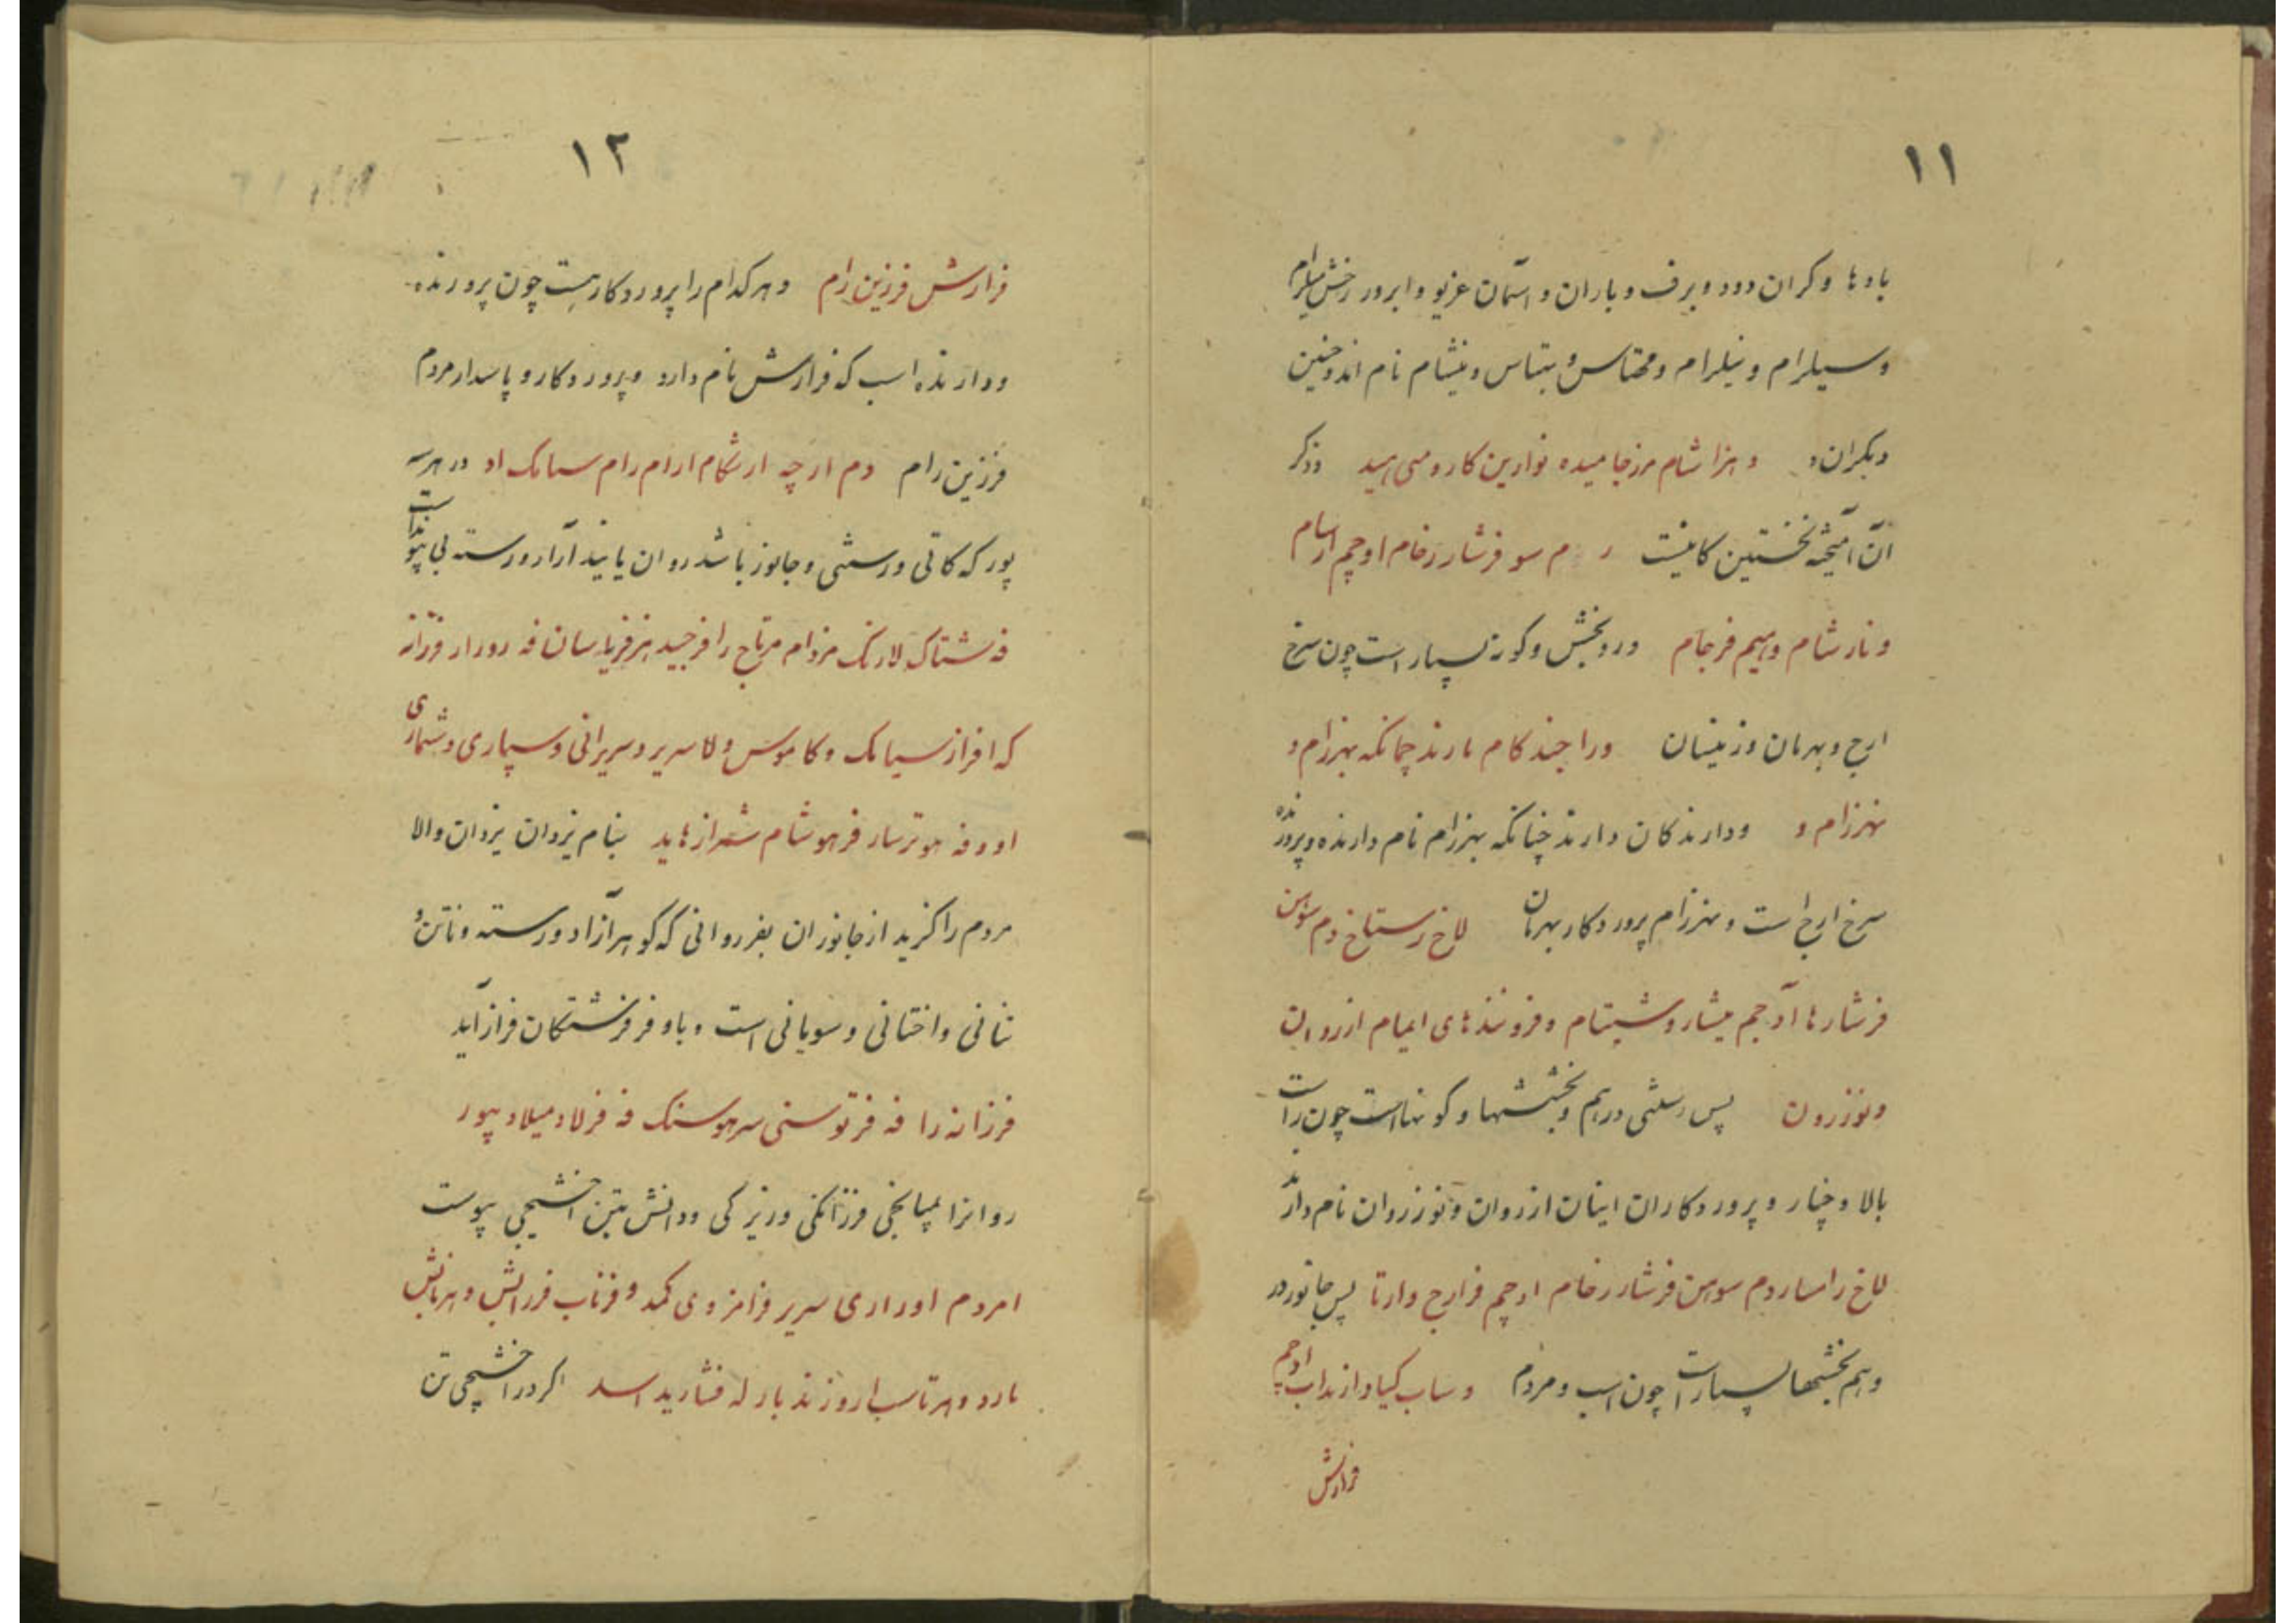 ١١
بادها وکران دود و برف و باران و آسمان غریو و ابر ور رخش میلرام
و سیلرام و نیلرام و مهتاس و بتاس و نیشام نام اند و چنین
دیکران و هزا شام مرزجامیده نوارین کار ومی هید وز کر
آن آمیخته نخستین کانیست م سو فرشار رخام اوچم ارسام
و نار شام و هیم فرجام و رو بخش و کونه بسیار است چون سرخ
ارج و بهرمان وزینسان ورا جند کام مارند چمانکه بهرزام و
نهرزام و ودارندکان دارند چنانکه بهرزام نام دارنده و پرورنده
سرخ ارج است و نهرزام پروردکار بهرمان لاخ رستاخ دم سوهن
فرشارها آدچم میشار و شیتام و فروندهای امیام ازروان
و نوزرون پس رستنی در هم و بخششها و کونهاست چون راست
بالا و چنار و پروردکاران اینان ازروان و نوزروان نام دارند
لاخ رامسار دم سوهن فرشار رخام ادچم فرارج وارتا پس جانور در
و هم بخشها بسیار است چون اسب و مردم و ساب کیاد ازنداب ادچم
فرارش
١٢
فرارش فرزین رام و هر کدام را پروردکاریست چون پرورنده
و دارنده اسب که فرارش نام دارد و پروردکار و پاسدار مردم
فرزین رام دم ارچه ارشکام ارام رام سمامک اد در هر سه
پور که کانی و رستنی و جانور باشد روان پایند آزاد و رسته بی پیوند است
فه شتاک لارنک مزدام مرتاج را فرجید هنر فریارسان فه رورار فرزانه
که افراز سیامک و کاموس و لا سریر و سریرانی و سپاری و شماری
او وفه هو ترسار فرهوشام شمرازهاید بنام یزدان یزدان والا
مردم را کزید از جانوران بفر روانی که کوهر آزاد و رسته و ناتن و
تنانی و اختانی و سویانی است و با و فر فرشتکان فراز آید
فرزانه را فه فرتوسنی سرهوسنک فه فرلاد میلاد پیور
روانرا بمیانجی فرزانکی و زیرکی و دانش بتن آخشیجی پیوست
امردم اوراری سریر فرامزوی کمد و فرتاب فررانش و هرتانش
مارد و هرتاسب ار وزند بار له فشارید اسد اکر در آخشیجی تن